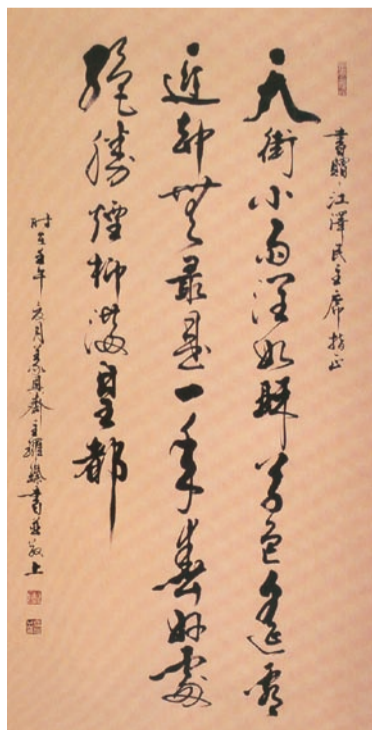 書贈江澤民主席指正
天街小雨潤如酥草色遙看
近却無最是一年春好處
絕勝煙柳滿皇都
时在壬午年月齋主羅書並敬上